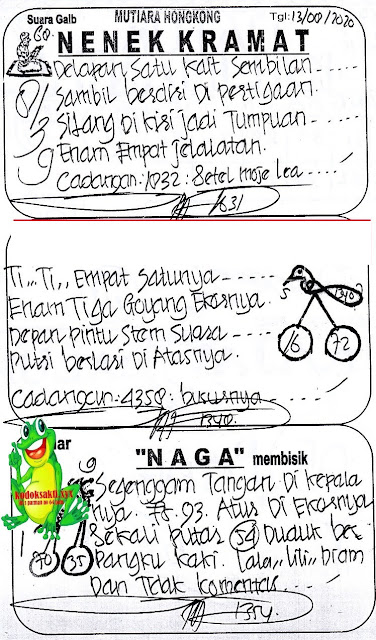 Suara Gaib MUTIARA HONGKONG Tgl: 13/09/2020
60. NENEK KRAMAT
8/3 9
Delapan Satu Kait Sembilan -----
Sambil berdiri Di Pertigaan.
Silang Di Kiri Jadi Tumpuan ----
Enam Empat Jelalatan.
Cadangan: 1032: Setel
1631
Ti,,, Ti,, Empat Satunya -----
Enam Tiga Goyang Ekornya.
Depan Pintu Stem Suara
Putri berlari Di Atasnya.
5 1340 16 72
Cadangan: 4358:
1340.
ar "NAGA" membisik
Kodoksakti.xyz
9 70 35
Segenggam Tangan Di Kepala
nya. 78. 93. Atur Di Ekornya
Sekali Putar 54 Duduk ber
Pangku Kaki. lala,, lili,, Diam
Dan Tidak Komentar.
1354.